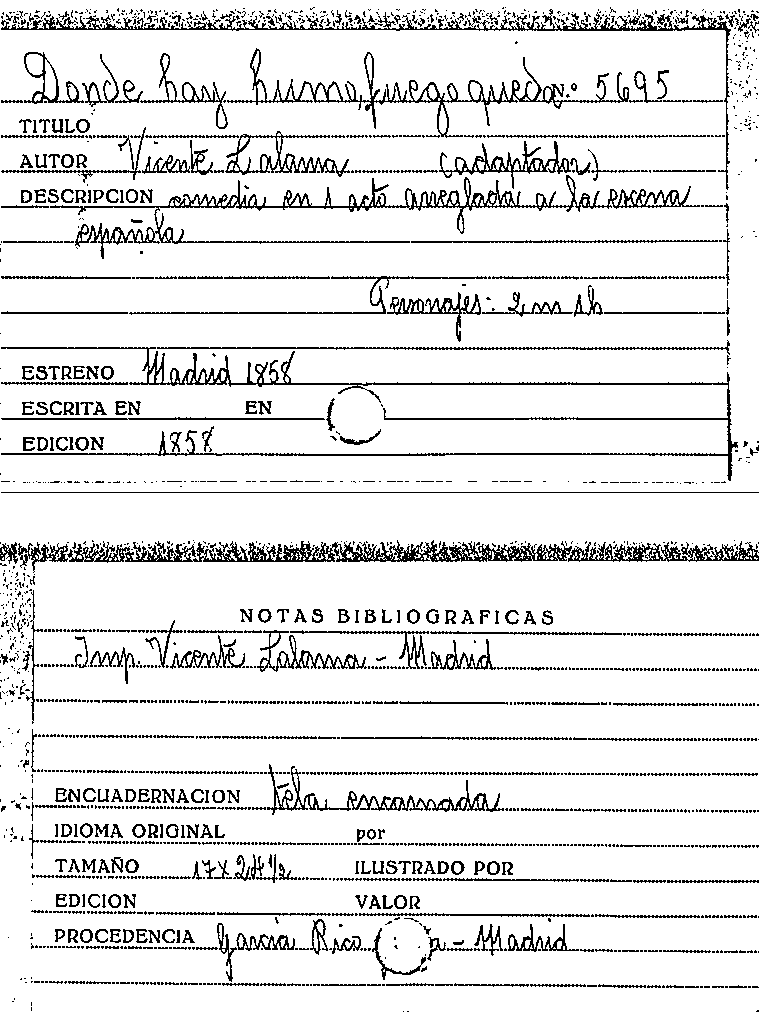 Donde hay humo, fuego queda N.º 5695
TITULO
AUTOR Vicente Lalama (adaptador)
DESCRIPCION comedia en 1 acto arreglada a la escena
española
Personajes: 2 m 1 h
ESTRENO Madrid 1858
ESCRITA EN EN
EDICION 1858
NOTAS BIBLIOGRAFICAS
Imp. Vicente Lalama - Madrid
ENCUADERNACION tela encarnada
IDIOMA ORIGINAL por
TAMAÑO 17 x 24 1/2 ILUSTRADO POR
EDICION VALOR
PROCEDENCIA García Rico - Madrid